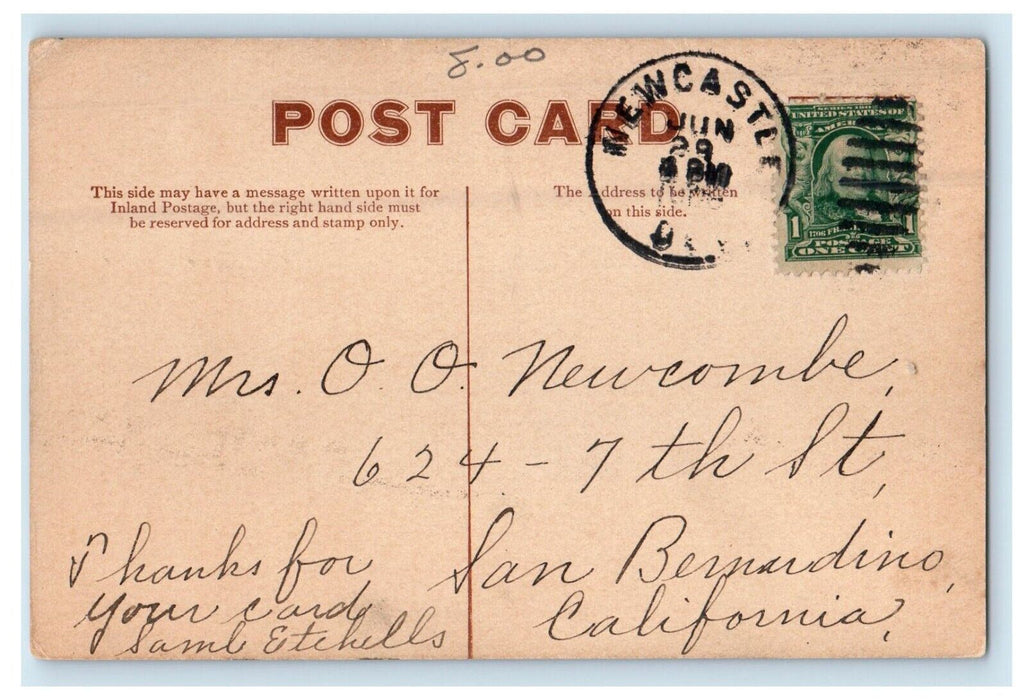 8.00
POST CARD
NEWCASTLE
JUN
29
PM
This side may have a message written upon it for
Inland Postage, but the right hand side must
be reserved for address and stamp only.
The Address to be written
on this side.
SERIES
UNITED STATES OF
AMERICA
1 1
POSTAGE
ONE CENT
Mrs. O. O. Newcombe,
624 - 7th St,
San Bernardino,
California,
Thanks for
your card
Saml Etchells